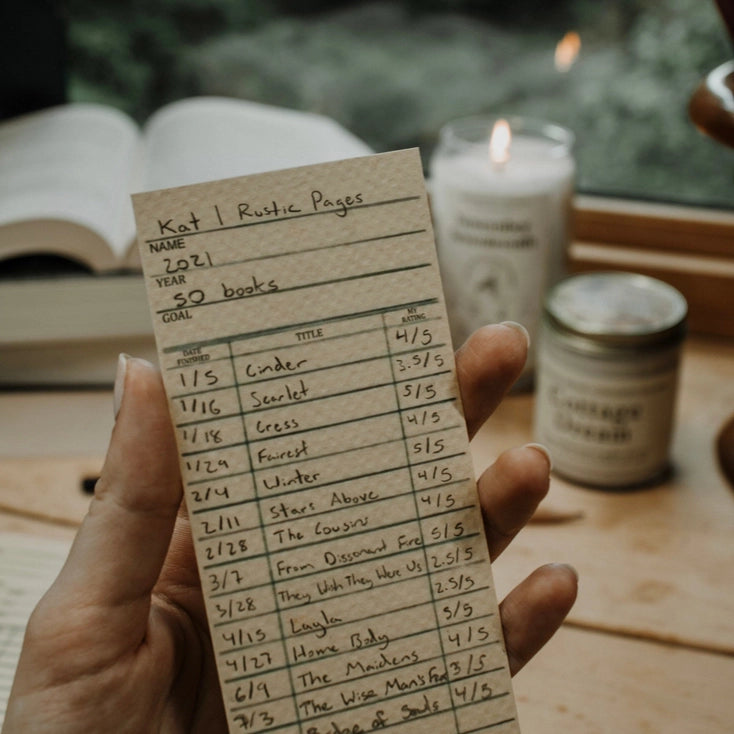 Kat | Rustic Pages
NAME
2021
YEAR
50 books
GOAL
DATE FINISHED TITLE MY RATING
1/5 Cinder 4/5
1/16 Scarlet 3.5/5
1/18 Cress 5/5
1/29 Fairest 4/5
2/4 Winter 5/5
2/11 Stars Above 4/5
2/28 The Cousins 4/5
3/7 From Dissonant Fire 5/5
3/28 They Wish They Were Us 2.5/5
4/15 Layla 2.5/5
4/27 Home Body 5/5
6/9 The Maidens 4/5
7/3 The Wise Man's Fear 3/5
of Souls 4/5
Cottage
Dream